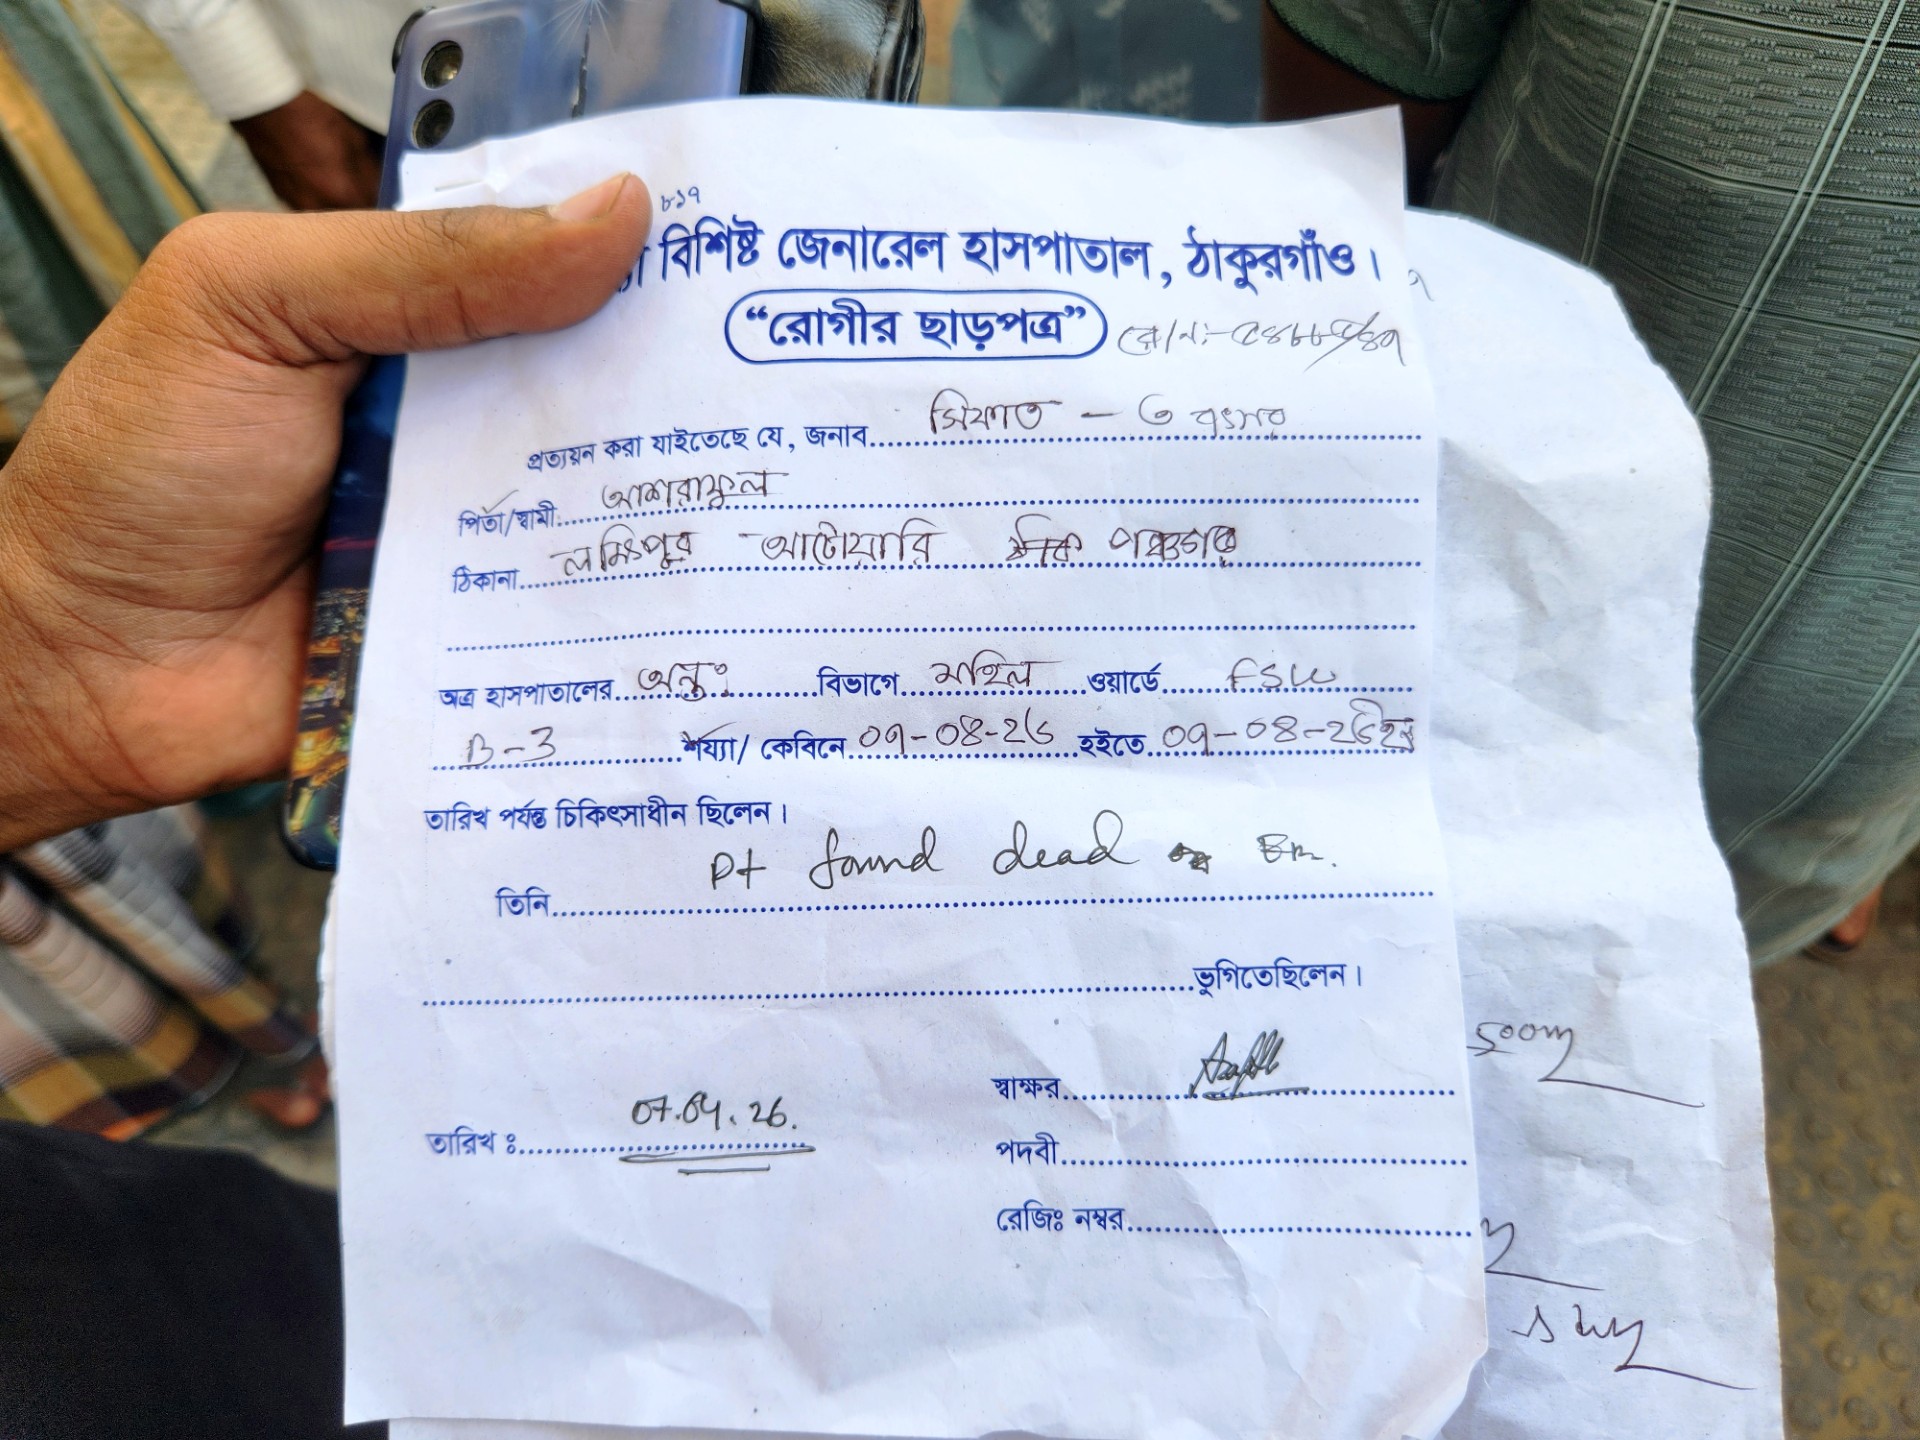 ৮১৭
বিশিষ্ট জেনারেল হাসপাতাল, ঠাকুরগাঁও।
“রোগীর ছাড়পত্র”
প্রত্যয়ন করা যাইতেছে যে, জনাব সিফাত - ৩ বৎসর
পিতা/স্বামী আশরাফুল
ঠিকানা লক্ষিপুর আটোয়ারি পঞ্চগড়
অত্র হাসপাতালের অন্তঃ বিভাগে মহিলা ওয়ার্ডে FSW
B-3 শয্যা/ কেবিনে ০৭-০৪-২৬ হইতে ০৭-০৪-২৬ইং
তারিখ পর্যন্ত চিকিৎসাধীন ছিলেন।
তিনি Pt found dead
ভুগিতেছিলেন।
স্বাক্ষর
তারিখ ঃ 07.04.26.
পদবী
রেজিঃ নম্বর